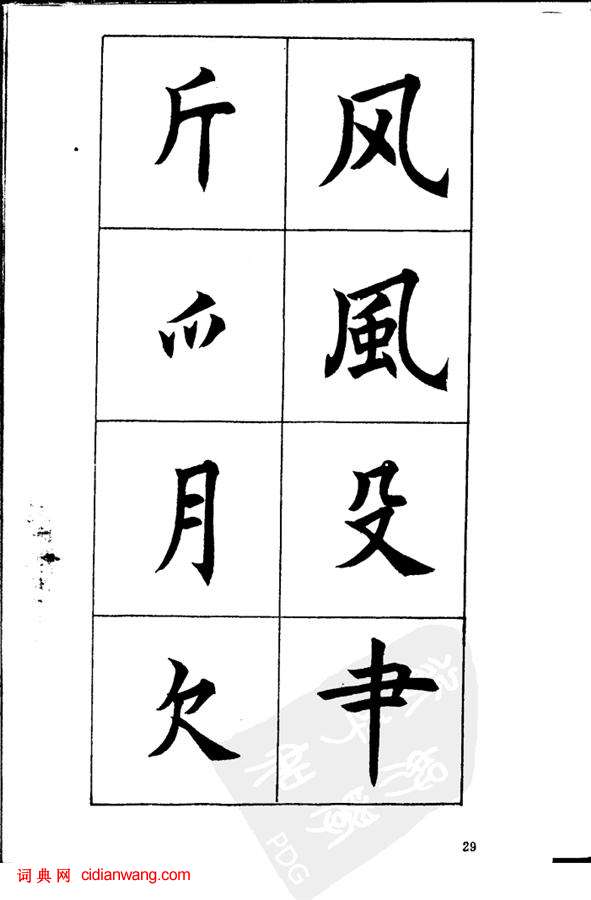 风風殳肀
斤爫月欠
29
PDG
词典网 cidianwang.com